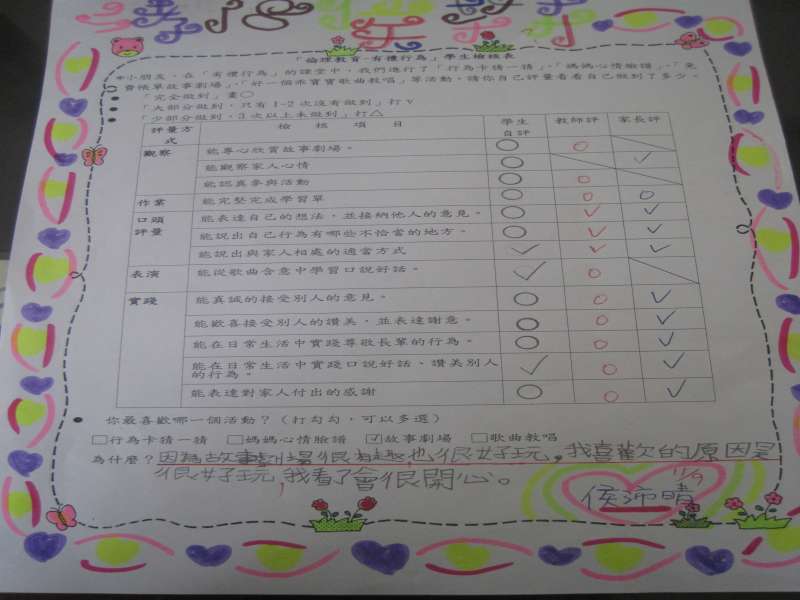 「倫理教育-有禮行為」學生檢核表
*小朋友，在「有禮行為」的課堂中，我們進行了「行為卡猜一猜」、「媽媽心情臉譜」、「免
費帳單故事劇場」、「好一個乖寶寶歌曲教唱」等活動，請你自己評量看看自己做到了多少。
「完全做到」畫○
「大部分做到，只有1-2次沒有做到」打v
「少部分做到，3次以上未做到」打△
評量方式 檢核項目 學生自評 教師評 家長評
觀察 能專心欣賞故事劇場。 ○ ○
能觀察家人心情 ○ ✓
能認真參與活動 ○ ○
作業 能完整完成學習單 ○ ○ ○
口頭評量 能表達自己的想法，並接納他人的意見。 ○ ✓ ✓
能說出自己行為有哪些不恰當的地方。 ○ ✓ ✓
能說出與家人相處的適當方式 ✓ ✓ ✓
表演 能從歌曲含意中學習口說好話。 ✓ ○
實踐 能真誠的接受別人的意見。 ○ ○ ✓
能歡喜接受別人的讚美，並表達謝意。 ○ ○ ✓
能在日常生活中實踐尊敬長輩的行為。 ○ ○ ✓
能在日常生活中實踐口說好話、讚美別人
的行為。 ✓ ○ ✓
能表達對家人付出的感謝 ○ ○ ✓
● 你最喜歡哪一個活動？（打勾勾，可以多選）
□行為卡猜一猜 □媽媽心情臉譜 ☑故事劇場 □歌曲教唱
為什麼？因為故事劇場很有趣也很好玩。我喜歡的原因是
很好玩，我看了會很開心。
11/9
侯沛晴